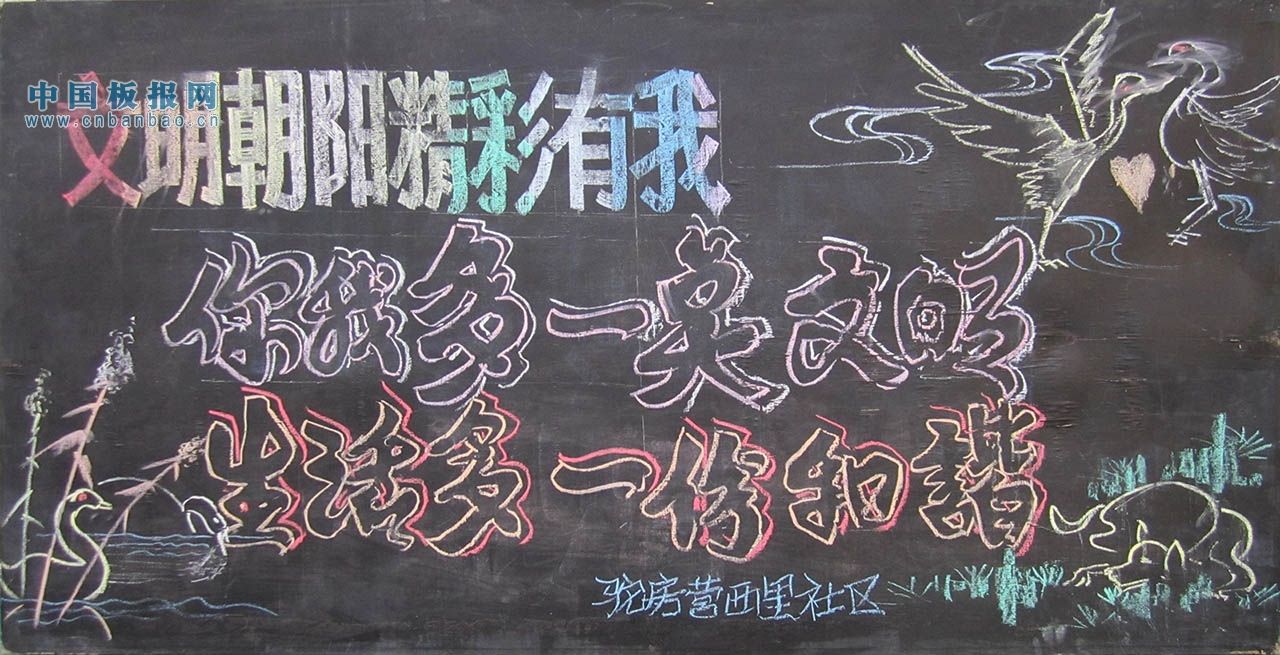 中国板报网
www.cnbanbao.cn
文明朝阳精彩有我
你我多一点文明
生活多一份和諧
驼房营西里社区